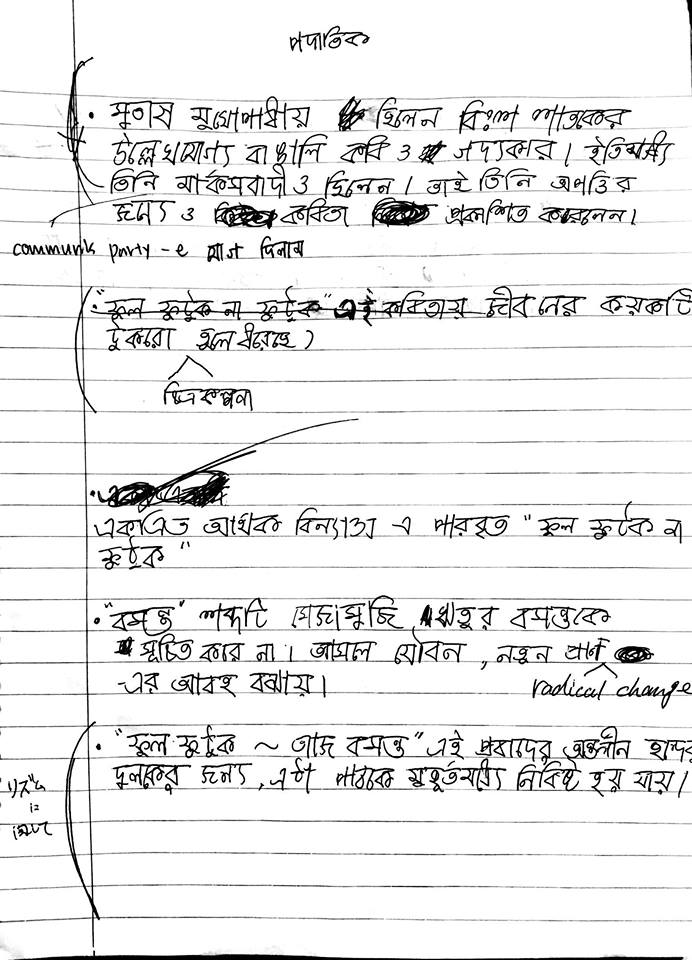 পদাতিক
• সুভাষ মুখোপাধ্যায় ছিলেন বিংশ শতকের
উল্লেখযোগ্য বাঙালি কবি ও গদ্যকার। ইতিমধ্যে
তিনি মার্কসবাদীও ছিলেন। তাই তিনি
জন্য ও কবিতা প্রকাশিত করলেন।
party-e যোগ দিলাম
• "ফুল ফুটুক না ফুটুক" এই কবিতায় জীবনের কয়কটি
টুকরো তুলে ধরেছে)
চিত্রকল্পনা
একত্রিত আর্থক এ "ফুল ফুটুক না
ফুটুক"
• "বসন্ত" শব্দটি সোজাসুজি ঋতুর বসন্তকে
সূচিত করে না। আসলে যৌবন, নতুন প্রাণ
-এর আবহ বঝায়।
radical change
• "ফুল ফুটুক ~ আজ বসন্ত" এই প্রবাদের অন্তলীন
দুলকের জন্য, এটা পাঠকে মুহূর্তমধ্যে নিবিষ্ট হয় যায়।